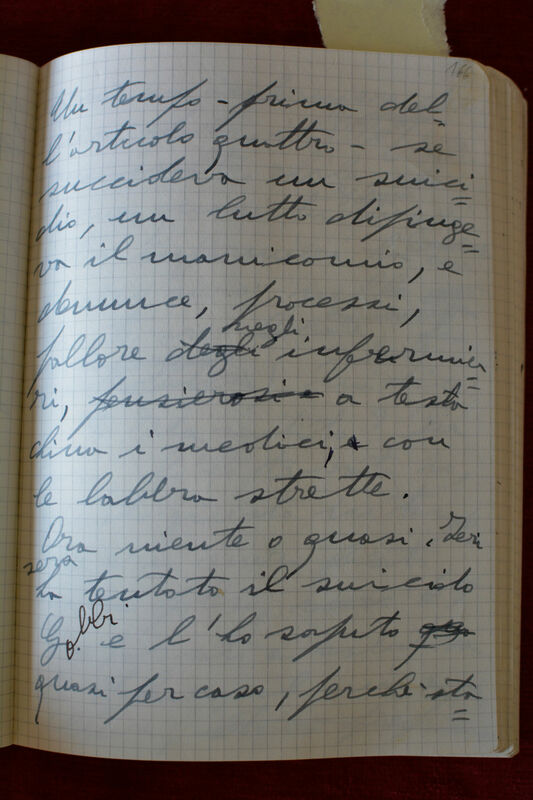 166
Un tempo - prima del=
l'articolo quattro - se
succideva un suici=
dio, un lutto dipinge=
va il manicomio, e
denunce, processi,
pallore degli negli infermie=
ri, pensierosi e a testa
china i medici, e con
le labbra strette.
Ora niente o quasi. Ieri
sera ha tentato il suicidio
Gobbi e l'ho saputo
quasi per caso, perchè sta=